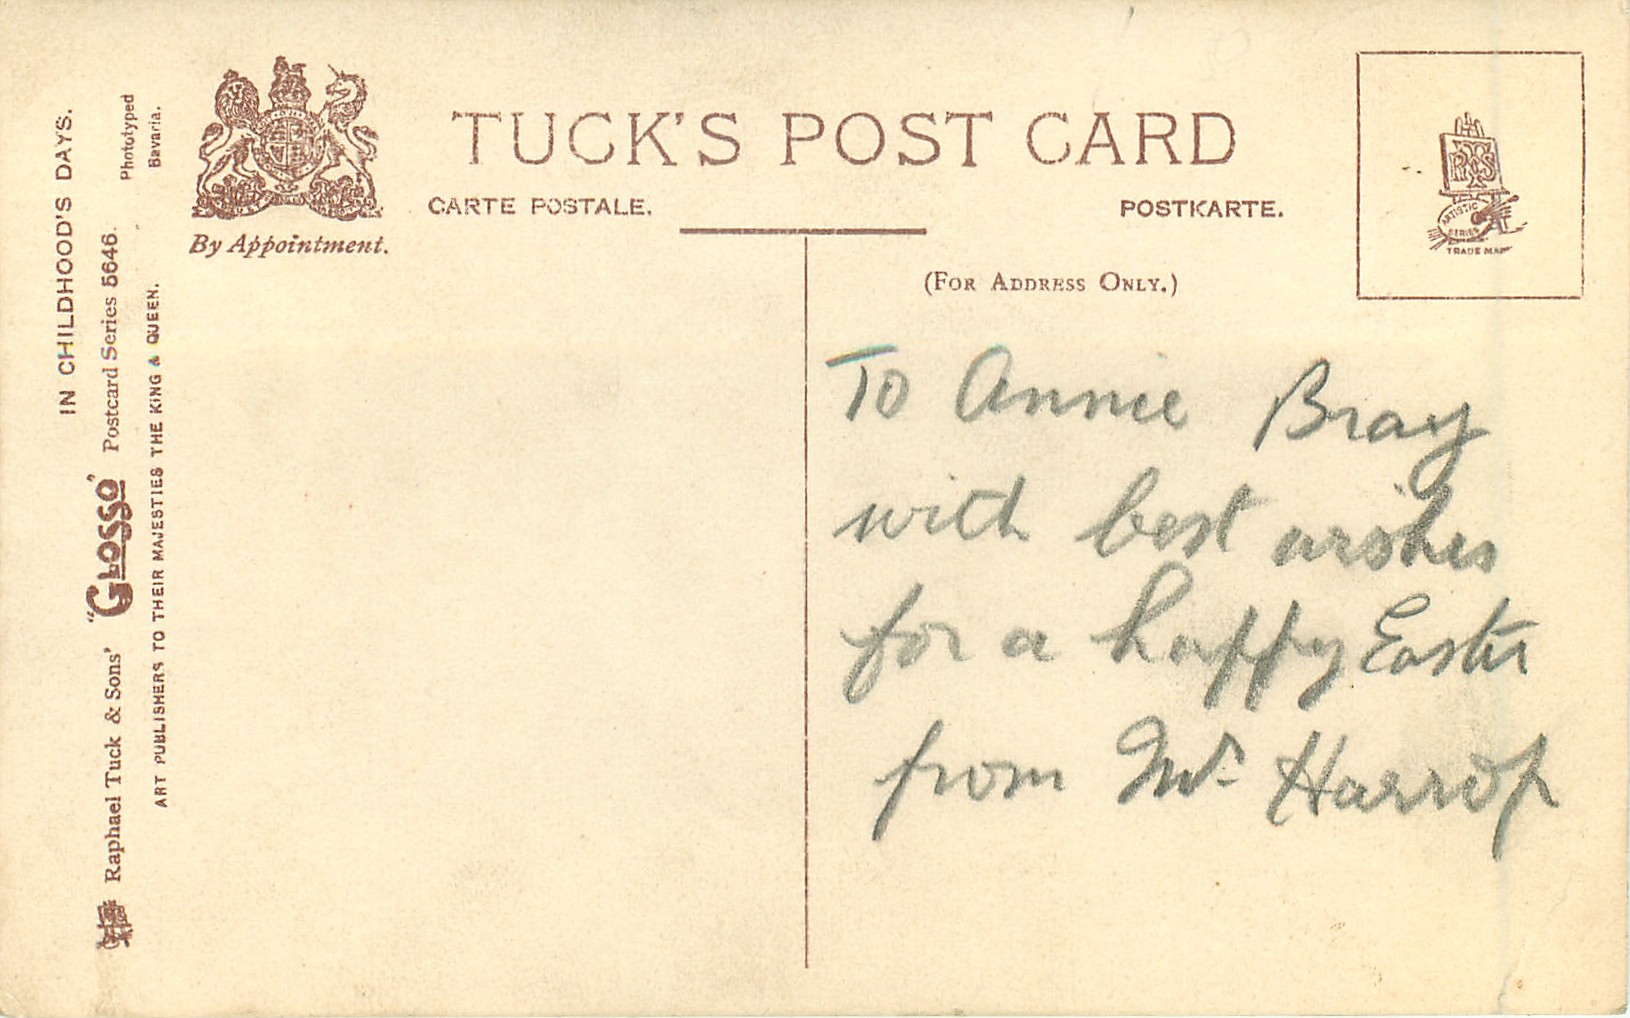 IN CHILDHOOD'S DAYS.
Raphael Tuck & Sons' "GLOSSO" Postcard Series 5646.
Phototyped
Bavaria.
ART PUBLISHERS TO THEIR MAJESTIES THE KING & QUEEN.
By Appointment.
TUCK'S POST CARD
CARTE POSTALE.
POSTKARTE.
(FOR ADDRESS ONLY.)
RTS
ARTISTIC
SERIES
TRADE MARK
To Annie Bray
with best wishes
for a happy Easter
from Mr Harrop